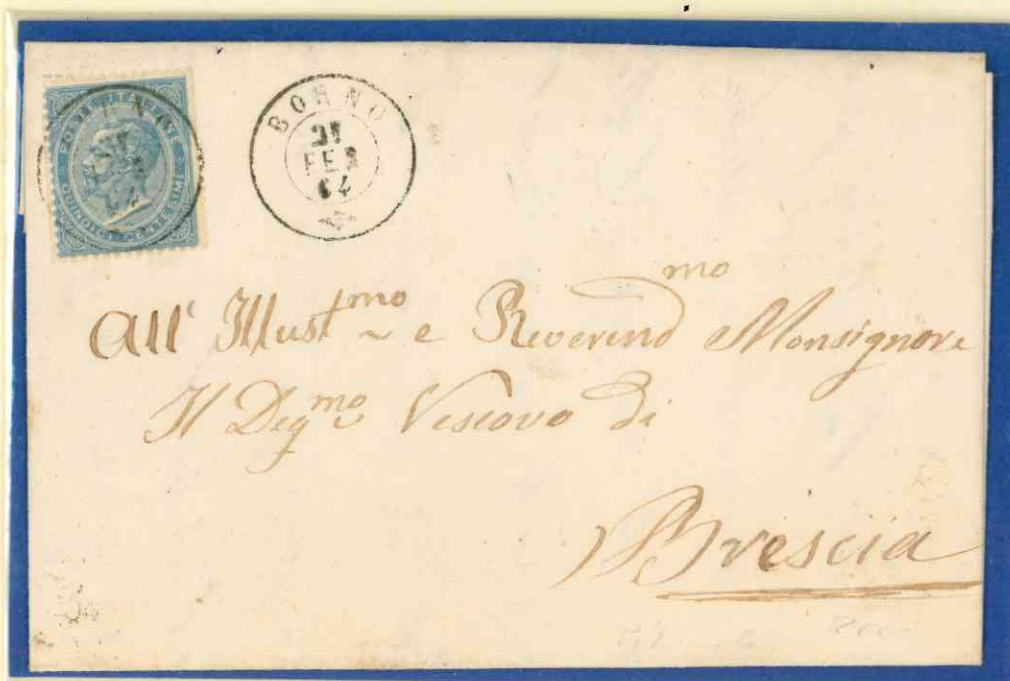 POSTE ITALIANE
QUINDICI CENTESIMI
BORNO
FEB
64
All' Illust.mo e Reverend.mo Monsignore
Il Deg.mo Vescovo di
Brescia